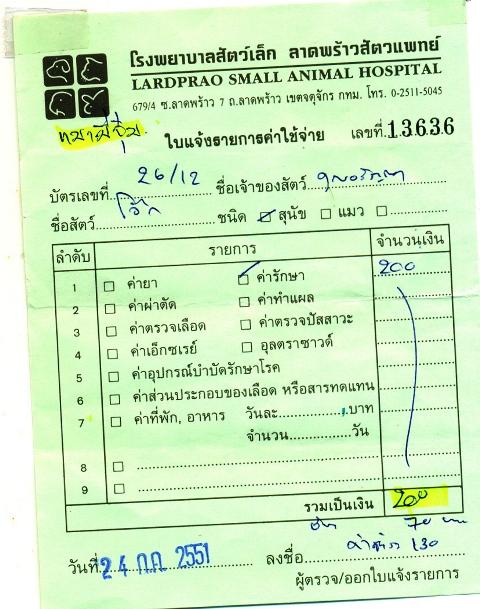 โรงพยาบาลสัตว์เล็ก ลาดพร้าวสัตวแพทย์
LARDPRAO SMALL ANIMAL HOSPITAL
679/4 ซ.ลาดพร้าว 7 ถ.ลาดพร้าว เขตจตุจักร กทม. โทร. 0-2511-5045
ใบแจ้งรายการค่าใช้จ่าย เลขที่ 13636
บัตรเลขที่ 26/12 ชื่อเจ้าของสัตว์
ชื่อสัตว์ ชนิด สุนัข แมว
ลำดับ รายการ จำนวนเงิน
1 ค่ายา ค่ารักษา 200
2 ค่าผ่าตัด ค่าทำแผล
3 ค่าตรวจเลือด ค่าตรวจปัสสาวะ
4 ค่าเอ็กซเรย์ อุลตราซาวด์
5 ค่าอุปกรณ์บำบัดรักษาโรค
6 ค่าส่วนประกอบของเลือด หรือสารทดแทน
7 ค่าที่พัก, อาหาร วันละ............บาท
จำนวน.............วัน
8
9
รวมเป็นเงิน 200
70
วันที่ 24 ก.ค. 2551 ลงชื่อ 130
ผู้ตรวจ/ออกใบแจ้งรายการ